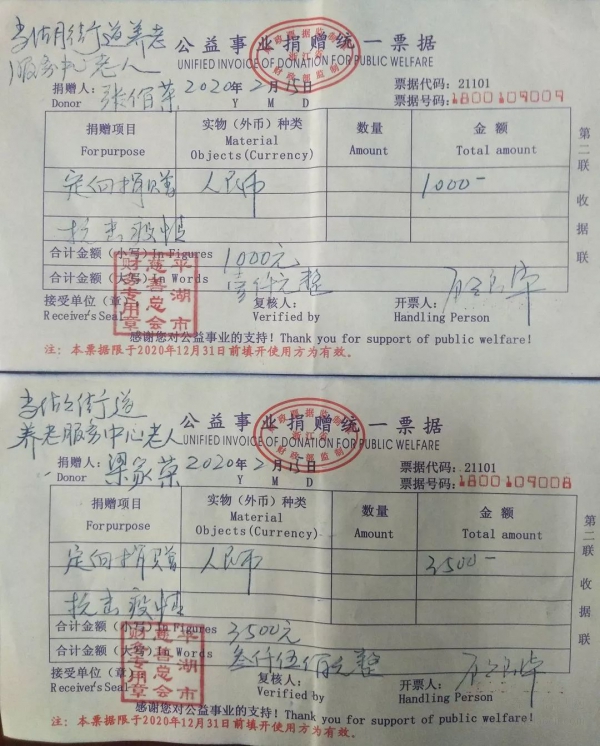 当湖街道养老
服务中心老人
公益事业捐赠统一票据
UNIFIED INVOICE OF DONATION FOR PUBLIC WELFARE
捐赠人：张伯荣 2020年2月15日
Donor Y M D
票据代码：21101
票据号码：1800109009
捐赠项目 实物（外币）种类 数量 金额
For purpose Material Objects(Currency) Amount Total amount
定向捐赠 人民币 1000-
抗击疫情
合计金额（小写）In Figures 1000元
合计金额（大写）In Words 壹仟元整
接受单位（章） 复核人： 开票人：
Receiver's Seal Verified by Handling Person
平湖市
慈善总会
财务专用章
感谢您对公益事业的支持！Thank you for support of public welfare!
注：本票据限于2020年12月31日前填开使用方为有效。
第二联 收据联
当湖街道
养老服务中心老人
公益事业捐赠统一票据
UNIFIED INVOICE OF DONATION FOR PUBLIC WELFARE
捐赠人：梁家荣 2020年2月15日
Donor Y M D
票据代码：21101
票据号码：1800109008
捐赠项目 实物（外币）种类 数量 金额
For purpose Material Objects(Currency) Amount Total amount
定向捐赠 人民币 3500-
抗击疫情
合计金额（小写）In Figures 3500元
合计金额（大写）In Words 叁仟伍佰元整
接受单位（章） 复核人： 开票人：
Receiver's Seal Verified by Handling Person
平湖市
慈善总会
财务专用章
感谢您对公益事业的支持！Thank you for support of public welfare!
注：本票据限于2020年12月31日前填开使用方为有效。
第二联 收据联